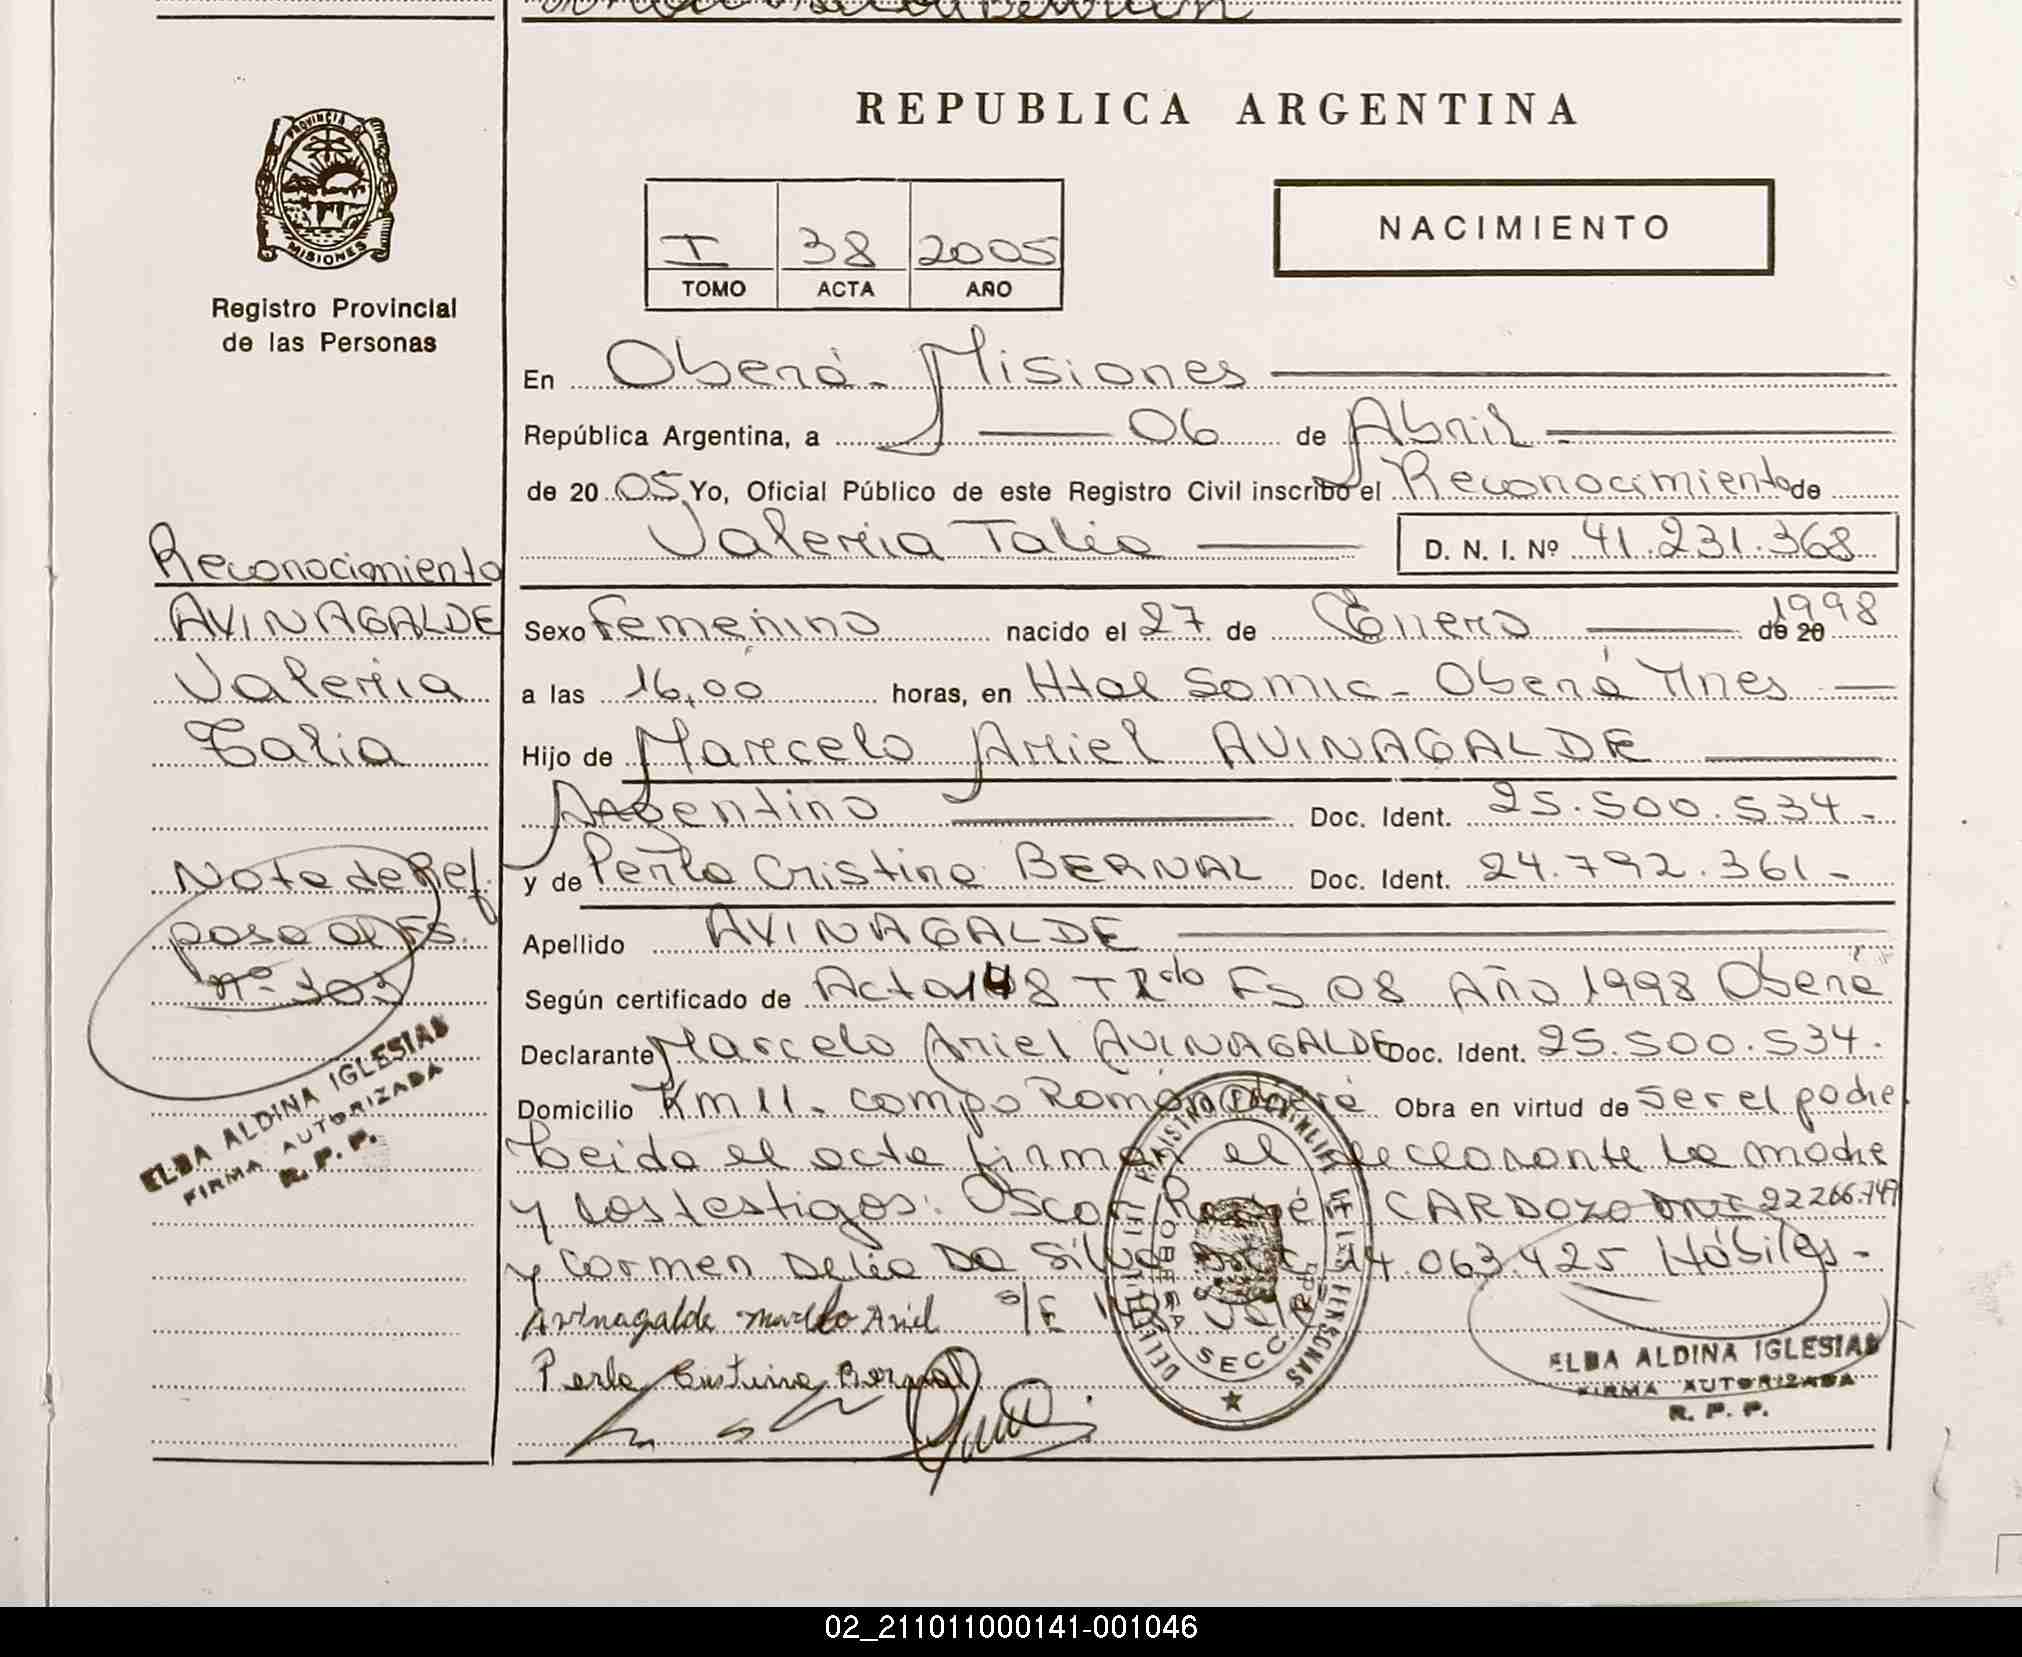 REPUBLICA ARGENTINA
PROVINCIA D
MISIONES
Registro Provincial
de las Personas
I 38 2005
TOMO ACTA AÑO
NACIMIENTO
En Oberá - Misiones
República Argentina, a 06 de Abril
de 20 05 Yo, Oficial Público de este Registro Civil inscribo el Reconocimiento de
Valeria Talia D. N. I. Nº 41.231.368
Sexo Femenino nacido el 27 de Enero de 20 1998
a las 16,00 horas, en Htal Samic - Oberá Mnes
Hijo de Marcelo Ariel AVINAGALDE
Argentino Doc. Ident. 25.500.534 -
y de Perla Cristina BERNAL Doc. Ident. 24.792.361 -
Apellido AVINAGALDE
Según certificado de Acta 148 T Fs 08 Año 1998 Oberá
Declarante Marcelo Ariel AVINAGALDE Doc. Ident. 25.500.534.
Domicilio Km 11 - Campo Ramón Oberá Obra en virtud de ser el padre
Leida el acta firman el declarante la madre
y los testigos: Oscar René CARDOZO DNI 22266.747
y Carmen Delia Da Silva DNI 14.063.425 Hábiles -
Avinagalde Marcelo Ariel S/E
Perla Cristina Bernal
Reconocimiento
AVINAGALDE
Valeria
Talia
Nota de Ref.
paso al Fs.
nº 303
ELBA ALDINA IGLESIAS
FIRMA AUTORIZADA
R. P. P.
REGISTRO PROVINCIAL DE LAS PERSONAS
OBERA
SECC.
ELBA ALDINA IGLESIAS
FIRMA AUTORIZADA
R. P. P.
02_211011000141-001046